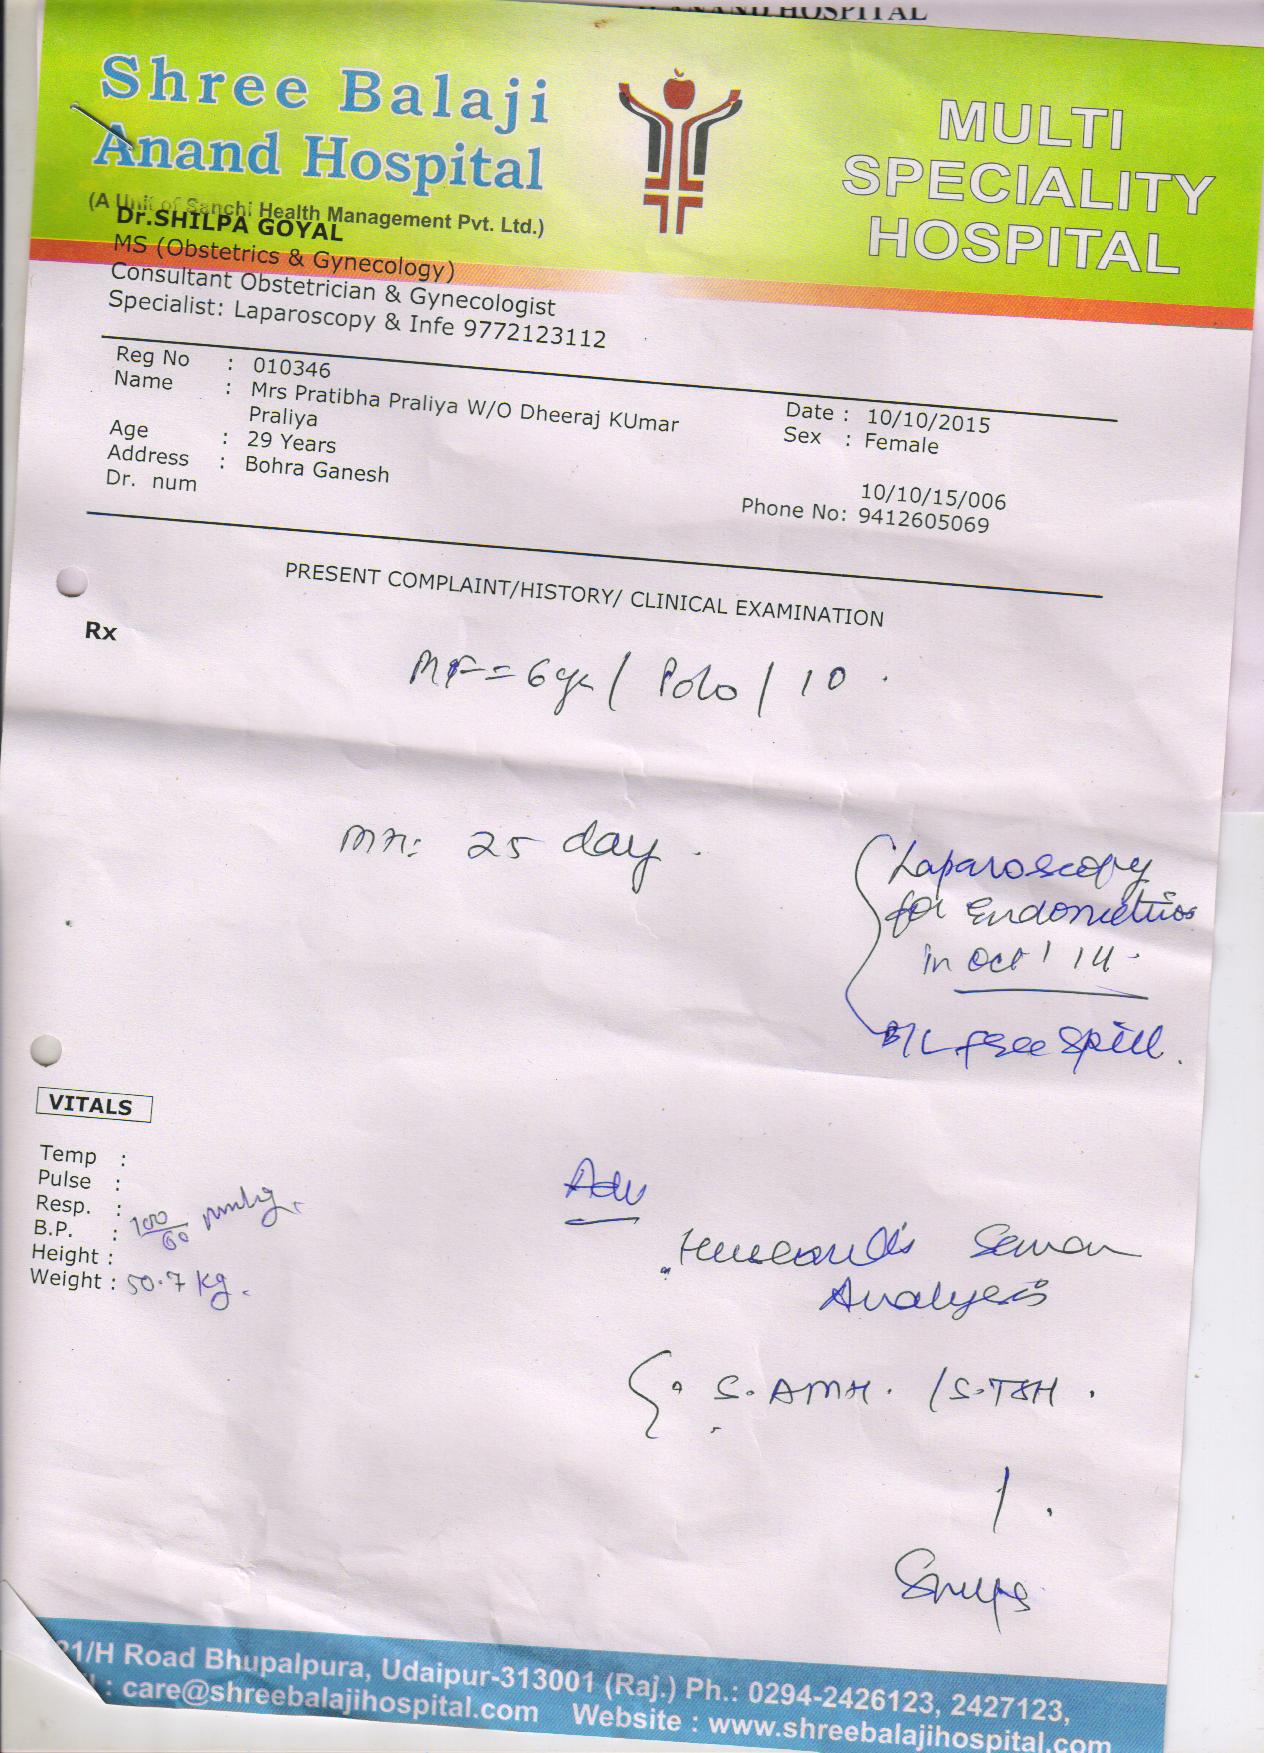 ANAND HOSPITAL
Shree Balaji
Anand Hospital
(A Unit of Sanchi Health Management Pvt. Ltd.)
MULTI
SPECIALITY
HOSPITAL
Dr.SHILPA GOYAL
MS (Obstetrics & Gynecology)
Consultant Obstetrician & Gynecologist
Specialist: Laparoscopy & Infe 9772123112
Reg No : 010346
Name : Mrs Pratibha Praliya W/O Dheeraj KUmar
Praliya
Date : 10/10/2015
Age : 29 Years
Sex : Female
Address : Bohra Ganesh
Dr. num
10/10/15/006
Phone No: 9412605069
PRESENT COMPLAINT/HISTORY/ CLINICAL EXAMINATION
Rx
MF= 6yr / P0L0 / 10
MH: 25 day.
Laparoscopy
for Endometrios
in Oct' 14
B/L free Spill.
VITALS
Temp :
Pulse :
Resp. :
B.P. : 100/60 mmhg.
Height :
Weight : 50.7 kg.
Adv
Husband's Semen
Analysis
S. AMH. / S. TSH.
21/H Road Bhupalpura, Udaipur-313001 (Raj.) Ph.: 0294-2426123, 2427123,
: care@shreebalajihospital.com Website : www.shreebalajihospital.com